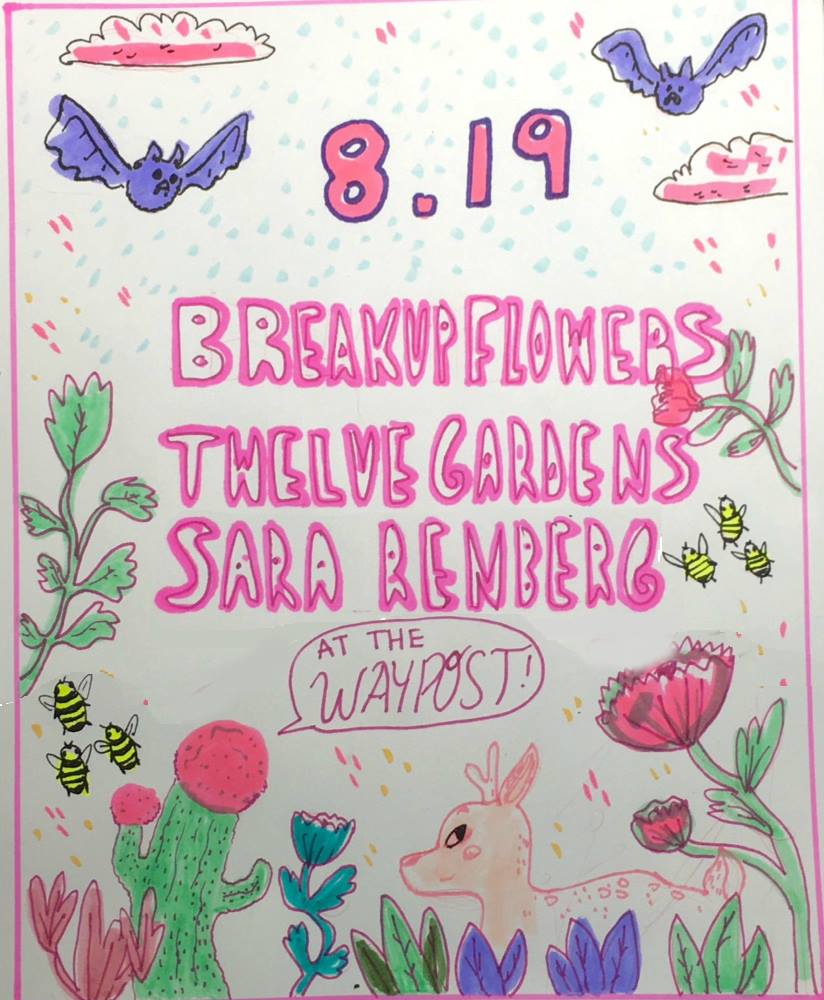 8.19
BREAKUP FLOWERS
TWELVE GARDENS
SARA RENBERG
AT THE
WAYPOST!